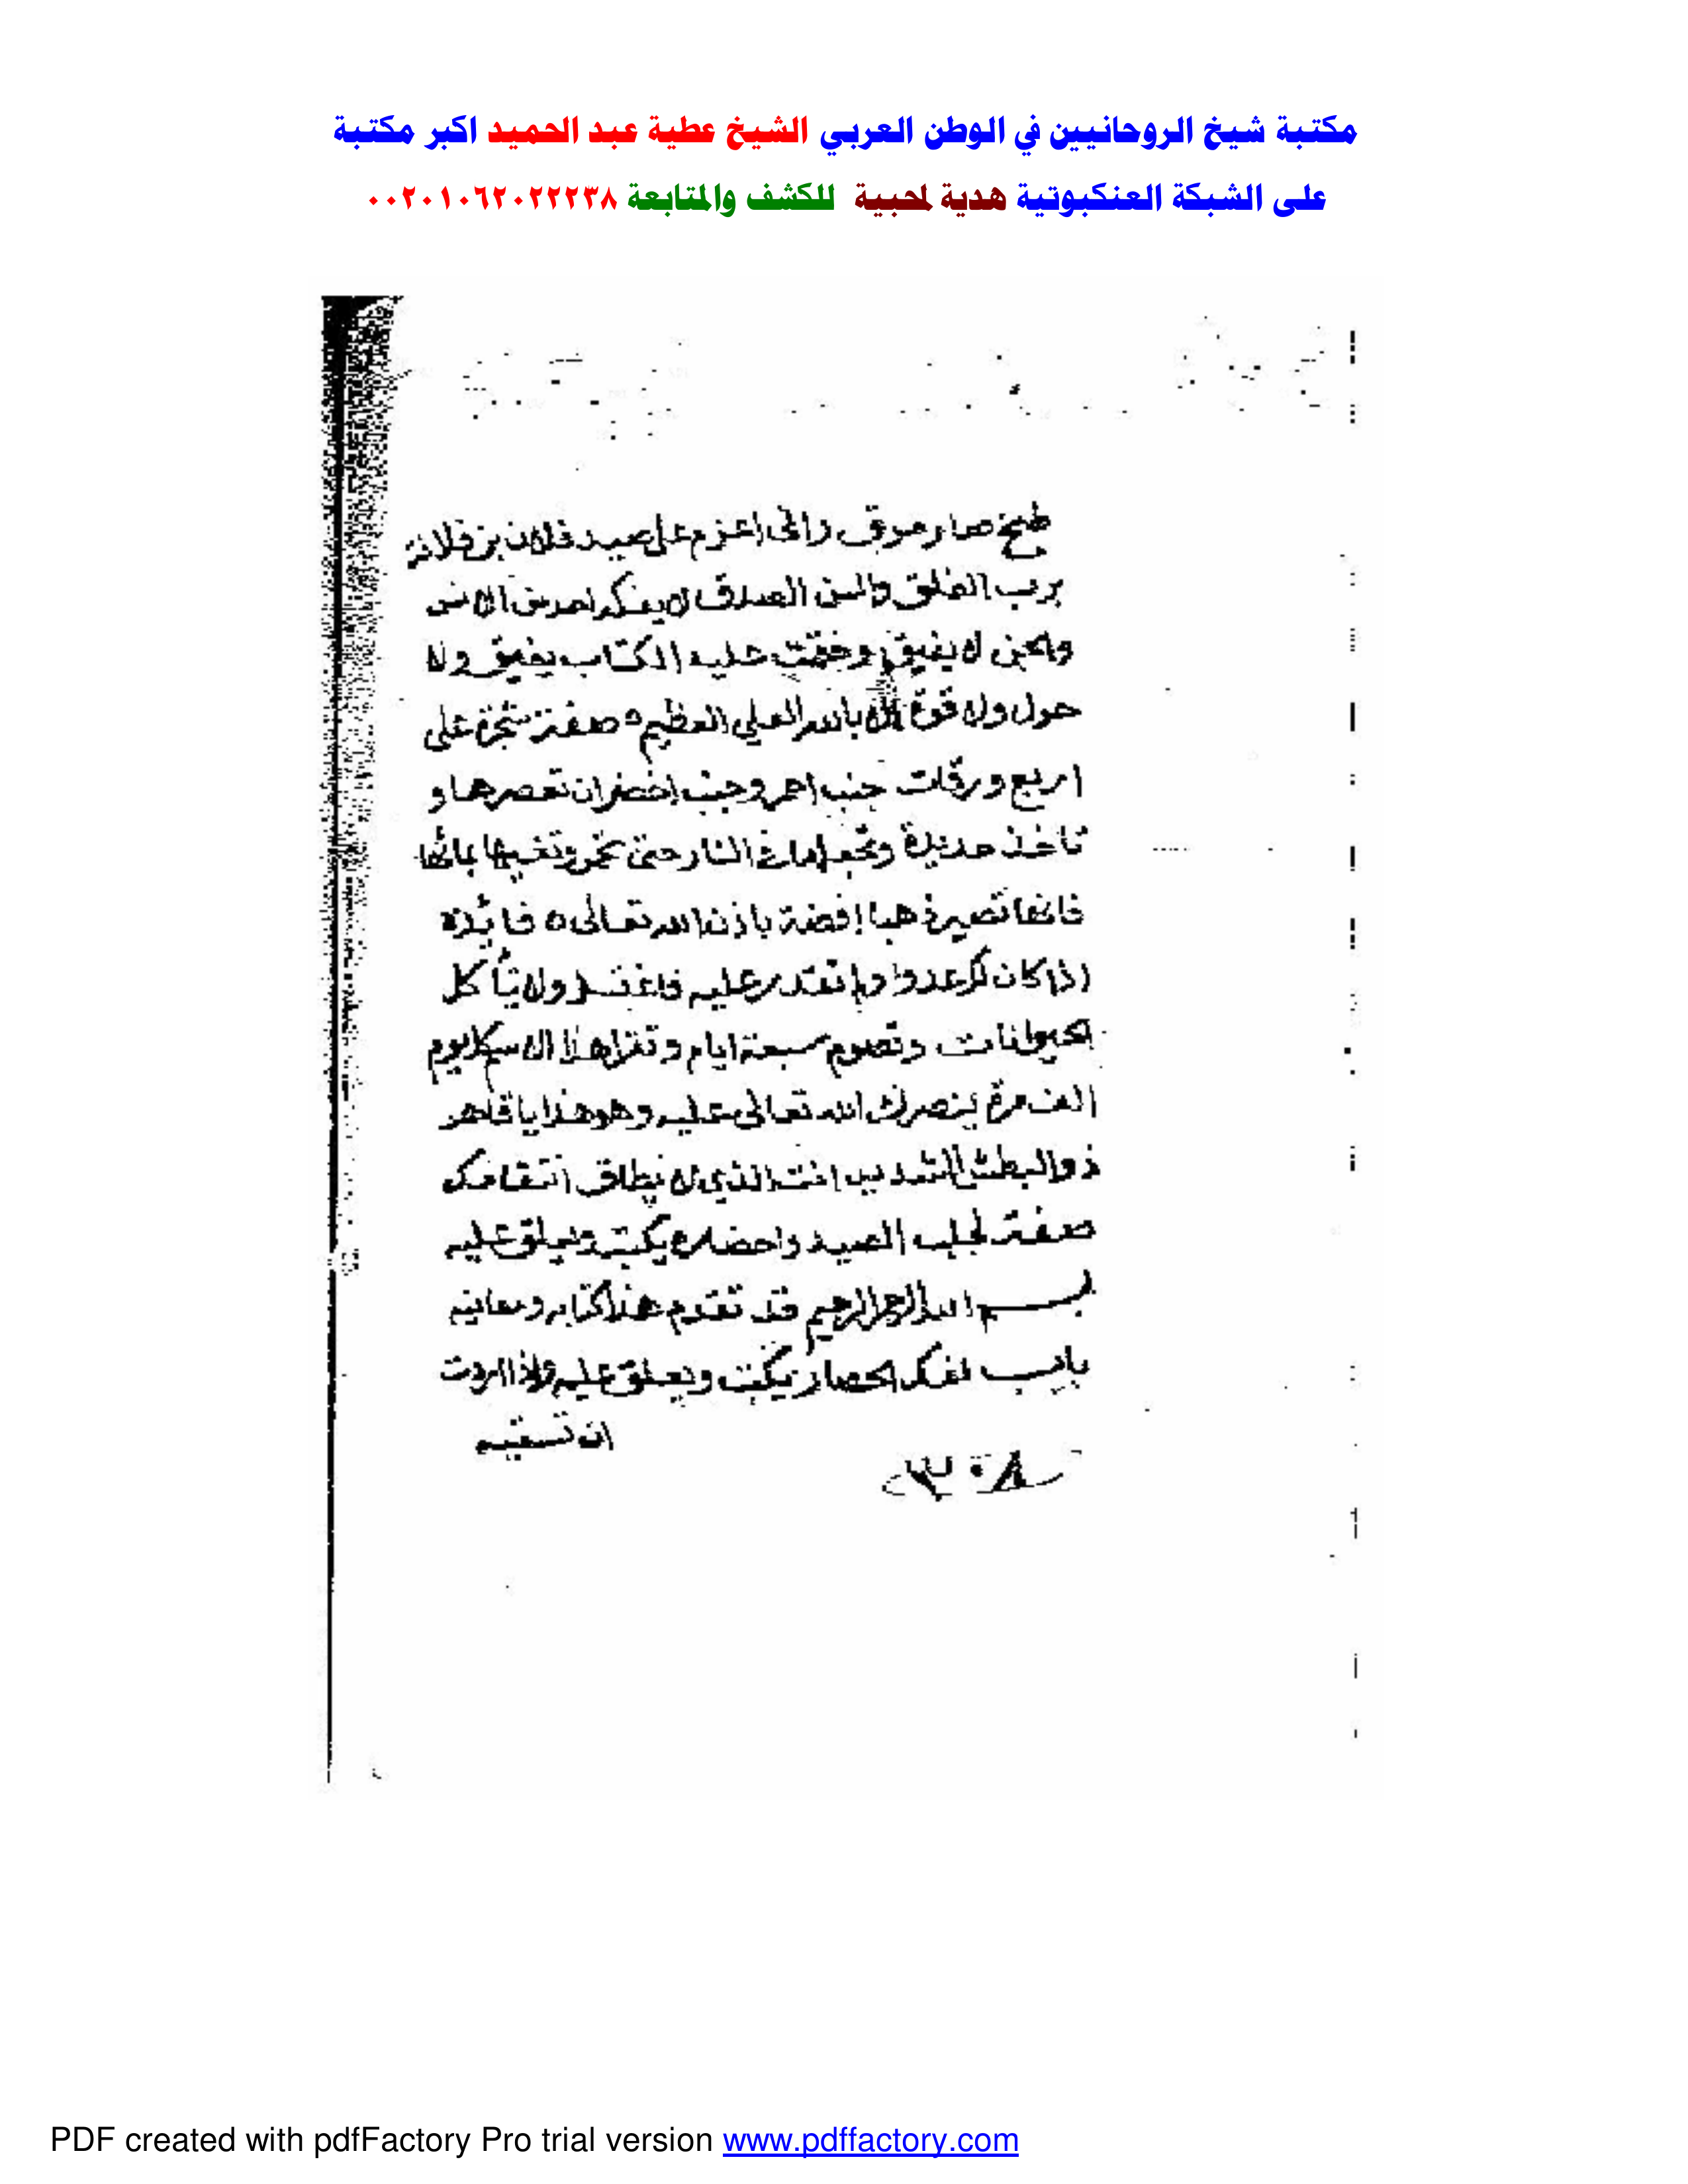 مكتبة شيخ الروحانيين في الوطن العربي الشيخ عطية عبد الحميد اكبر مكتبة
على الشبكة العنكبوتية هدية لمحبية للكشف والمتابعة ٠٠٢٠١٠٦٢٠٢٢٢٣٨
طبخ صار مرق واني اعزم على صيد فلان بن فلانه
برب الفلق والسن الصدق لا يفكه احد من الانس
والجن لا يفيق وختمت عليه الكتاب ولا
حول ولا قوة الا بالله العلي العظيم ٥ صفة شجرة على
اربع ورقات جنب احمر وجنب اخضر ان تعصرها و
تاخذ حديدة وتجعلها في النار حتى تحمر وتغيبها بمائها
فانها تصير ذهبا او فضة باذن الله تعالى ٥ فائدة
اذا كان لك عدوا ولم تقدر عليه فاغتسل ولا تأكل
الحيوانات وتصوم سبعة ايام وتقرا هذا الاسم كل يوم
الف مرة ينصرك الله تعالى عليه وهو هذا يا قاهر
ذو البطش الشديد انت الذي لا يطاق انتقامك
صفة لجلب الصيد واحضاره يكتب ويعلق عليه
بسم الله الرحمن الرحيم قد تقدم هذا كتابه ومعانيه
باب لفك الحصار يكتب ويعلق عليه واذا اردت
ان تسقيه
PDF created with pdfFactory Pro trial version www.pdffactory.com